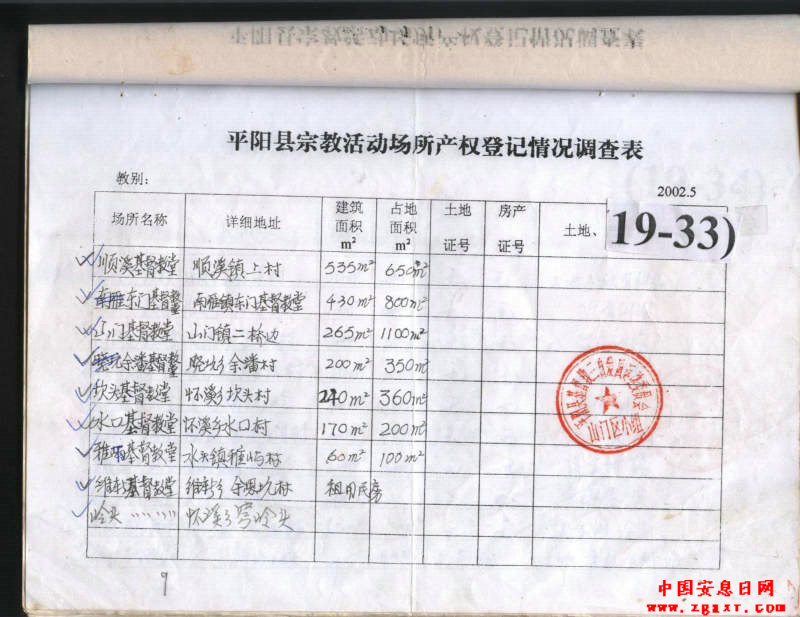 平阳县宗教活动场所产权登记情况调查表
教别:
2002.5
19-33)
场所名称 详细地址 建筑面积 m² 占地面积 m² 土地证号 房产证号 土地、
顺溪基督教堂 顺溪镇上村 535m² 650m²
南雁东门基督教堂 南雁镇东门基督教堂 430m² 800m²
山门基督教堂 山门镇二桥边 265m² 1100m²
余潘基督教堂 余潘村 200m² 350m²
坎头基督教堂 怀溪乡坎头村 240m² 360m²
水口基督教堂 怀溪乡水口村 170m² 200m²
基督教堂 水头镇 村 60m² 100m²
维新基督教堂 维新乡 村 租用民房
岭头 〃〃〃〃〃 怀溪乡 岭头
山门区小组
9
中国安息日网
www.zgaxr.com